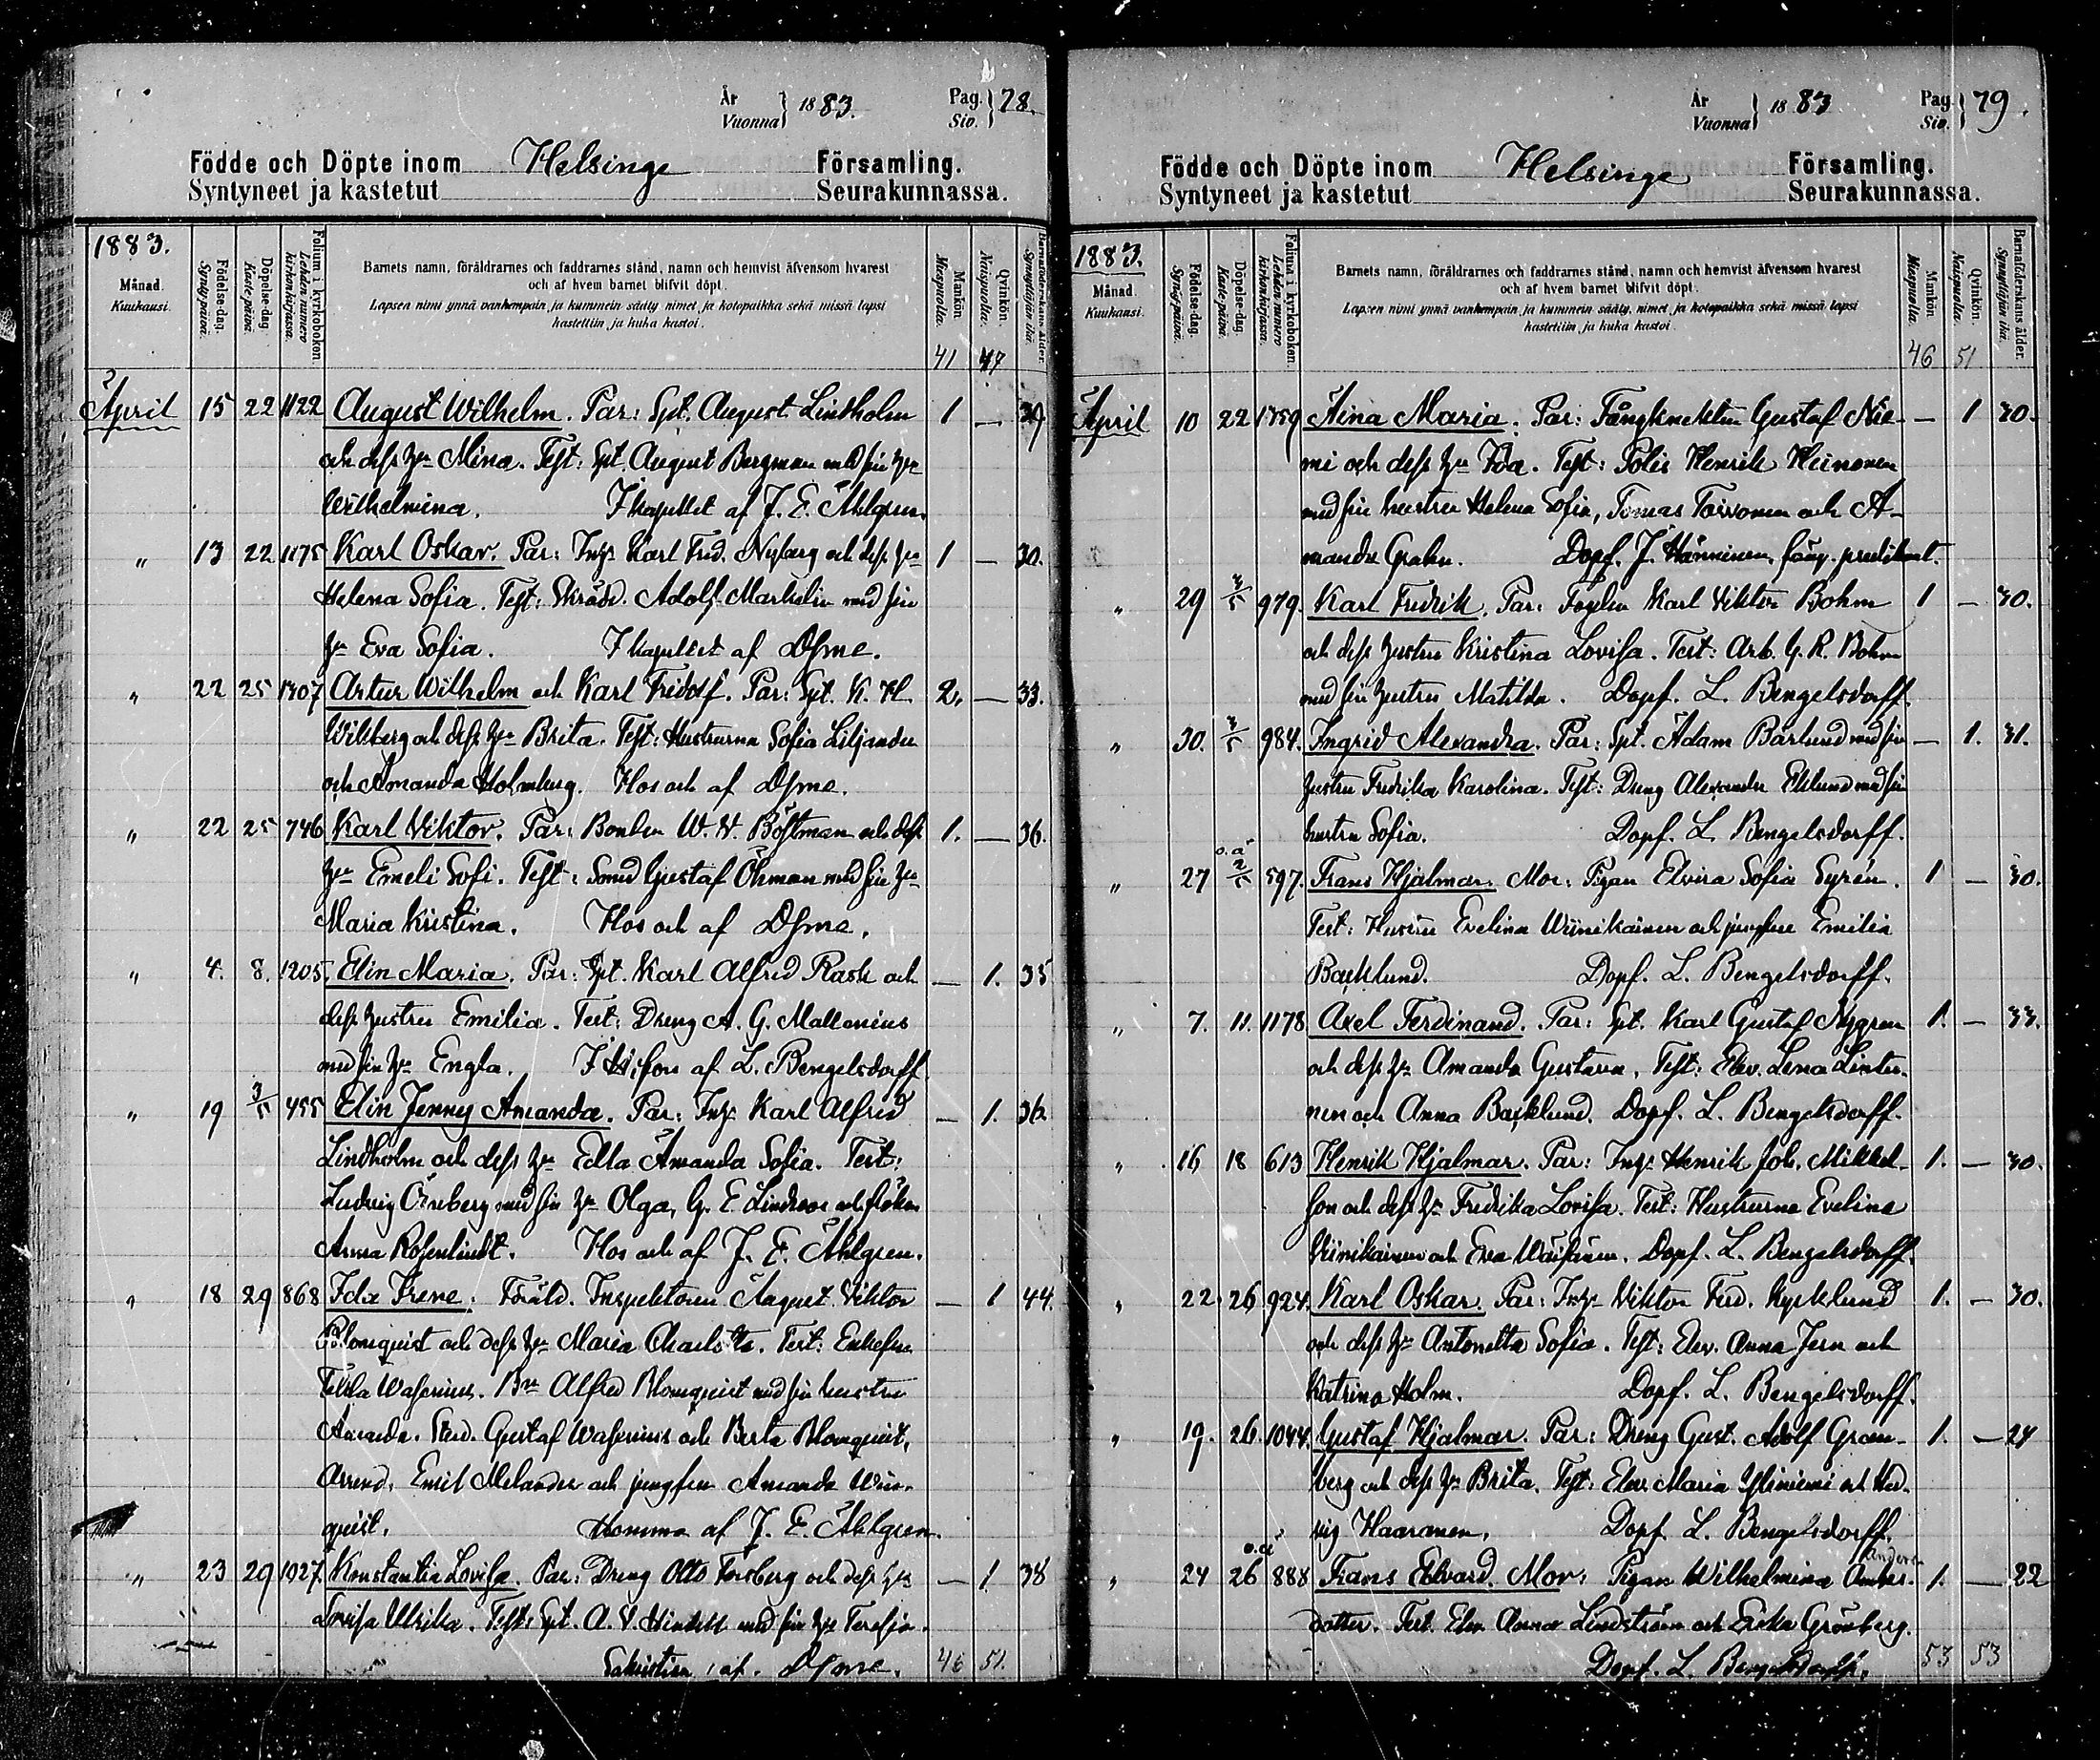 År
Vuonna 1883.
Pag.
Siv. 78.
Födde och Döpte inom Helsinge Församling.
Syntyneet ja kastetut Seurakunnassa.
1883.
Månad.
Kuukausi.
Födelse-dag.
Synty-päivä.
Döpelse-dag.
Kaste-päivä.
Folium i kyrkoboken.
Lehden numero kirkonkirjassa.
Barnets namn, föräldrarnes och faddrarnes stånd, namn och hemvist äfvensom hvarest
och af hvem barnet blifvit döpt.
Lapsen nimi ynnä vanhempain ja kummein sääty nimet ja kotopaikka sekä missä lapsi
kastettiin ja kuka kastoi.
Mankön.
Miespuolia.
Qvinkön.
Naispuolia.
Barnaföderskans ålder.
Synnyttäjän ikä.
41 47
April 15 22 1122 August Wilhelm. Par: Spt. August Lindholm 1 — 39
och dess hu Mina. Test: Spt. August Bergman med sin hu
Wilhelmina. I kapellet af J. E. Ahlgren.
" 13 22 1175 Karl Oskar. Par: Inhs Karl Fred. Nyberg och dess hu 1 — 30.
Helena Sofia. Test: Skrädd. Adolf Markelin med sin
hu Eva Sofia. I kapellet af Dsme.
" 22 25 1307 Artur Wilhelm och Karl Fridolf. Par: Spt. K. H. 2. — 33.
Wikberg och dess hu Brita. Test: Hustrurna Sofia Liljander
och Amanda Holmberg. Hos och af Dsme.
" 22 25 746 Karl Viktor. Par: Bonden W. W. Böstman och dess 1. — 36.
hu Emeli Sofi. Test: Smed Gustaf Öhman med sin hu
Maria Kristina. Hos och af Dsme.
" 4. 8. 1205. Elin Maria. Par: Spt. Karl Alfred Rask och — 1. 35
dess hustru Emilia. Test: Dreng A. G. Mallenius
med sin hu Engla. I H:fors af L. Bengelsdorff.
" 19 3/5 455 Elin Jenny Amanda. Par: Inhs Karl Alfred — 1. 36.
Lindholm och dess hu Edla Amanda Sofia. Test:
Ludvig Örnberg med sin hu Olga, G. E. Lindroos och fröken
Anna Rosenlindt. Hos och af J. E. Ahlgren.
" 18 29 868 Ida Irene. Föräld. Inspektoren August Viktor — 1 44.
Blomquist och dess hu Maria Charlotta. Test: Enkefru
Tekla Waserius. Bn Alfred Blomquist med sin hustru
Amanda. Stud. Gustaf Waserius och Berta Blomquist,
Arrend. Emil Melander och jungfru Amanda Win-
quist. Hemma af J. E. Ahlgren.
" 23 29 1027 Konstantia Lovisa. Par: Dreng Otto Forsberg och dess hu — 1 38
Lovisa Ulrika. Test: Spt. A. V. med sin hu Teresia.
Sakristian af Dsme. 46 51.
År
Vuonna 1883
Pag.
Siv. 79.
Födde och Döpte inom Helsinge Församling.
Syntyneet ja kastetut Seurakunnassa.
1883.
Månad.
Kuukausi.
Födelse-dag.
Synty-päivä.
Döpelse-dag.
Kaste-päivä.
Folium i kyrkoboken.
Lehden numero kirkonkirjassa.
Barnets namn, föräldrarnes och faddrarnes stånd, namn och hemvist äfvensom hvarest
och af hvem barnet blifvit döpt.
Lapsen nimi ynnä vanhempain ja kummein sääty, nimet ja kotopaikka sekä missä lapsi
kastetiin ja kuka kastoi.
Mankön.
Miespuolia.
Qvinkön.
Naispuolia.
Barnaföderskans ålder.
Synnyttäjän ikä.
46 51
April 10 22 1359 Aina Maria. Par: Fångknekten Gustaf Nie- — 1 30.
mi och dess hu Ida. Test: Polis Henrik Heinonen
med sin hustru Helena Sofia, Tomas Toivonen och A-
manda Grahn. Döpf. J. Hänninen, fång. predikant.
" 29 3/5 979 Karl Fredrik. Par: Fogden Karl Viktor Bohm 1 — 30.
och dess hustru Kristina Lovisa. Test: Arb. G. R. Bohm
med sin hustru Matilda. Döpf. L. Bengelsdorff.
" 30. 3/5 984. Ingrid Alexandra. Par: Spt. Adam Barlund med sin — 1. 31.
hustru Fredrika Karolina. Test: Dreng Alexander Eklund med sin
hustru Sofia. Döpf. L. Bengelsdorff.
" 27 o.ä. 2/5 597. Frans Hjalmar. Mor: Pigan Elvira Sofia Syrén. 1 — 30.
Test: Hustru Evelina Wiinikainen och jungfru Emilia
Backlund. Döpf. L. Bengelsdorff.
" 7. 11. 1178 Axel Ferdinand. Par: Spt. Karl Gustaf Nygren 1. — 33.
och dess hu Amanda Gustava. Test: Elev. Lena Lintu-
nen och Anna Backlund. Döpf. L. Bengelsdorff.
" 16 18 613 Henrik Hjalmar. Par: Inhs Henrik Joh. Mikkel- 1. — 30.
son och dess hu Fredrika Lovisa. Test: Hustrurna Evelina
Wiinikainen och Eva Wäisänen. Döpf. L. Bengelsdorff.
" 22. 26 924. Karl Oskar. Par: Inhs Viktor Ferd. Kyrklund 1. — 30.
och dess hu Antonetta Sofia. Test: Elev. Anna Jern och
Katrina Holm. Döpf. L. Bengelsdorff.
" 19. 26. 1044. Gustaf Hjalmar. Par: Dreng Gust. Adolf Gran- 1. — 24
berg och dess hu Brita. Test: Elev. Maria Yliniemi och Hed-
vig Haaranen. Döpf. L. Bengelsdorff.
" 24 o.ä. 26 888 Frans Edvard. Mor: Pigan Wilhelmina Anders- 1. — 22
dotter. Test. Elev. Anna Lindström och Ericka Grönberg.
Döpf. L. Bengelsdorff. 53 53